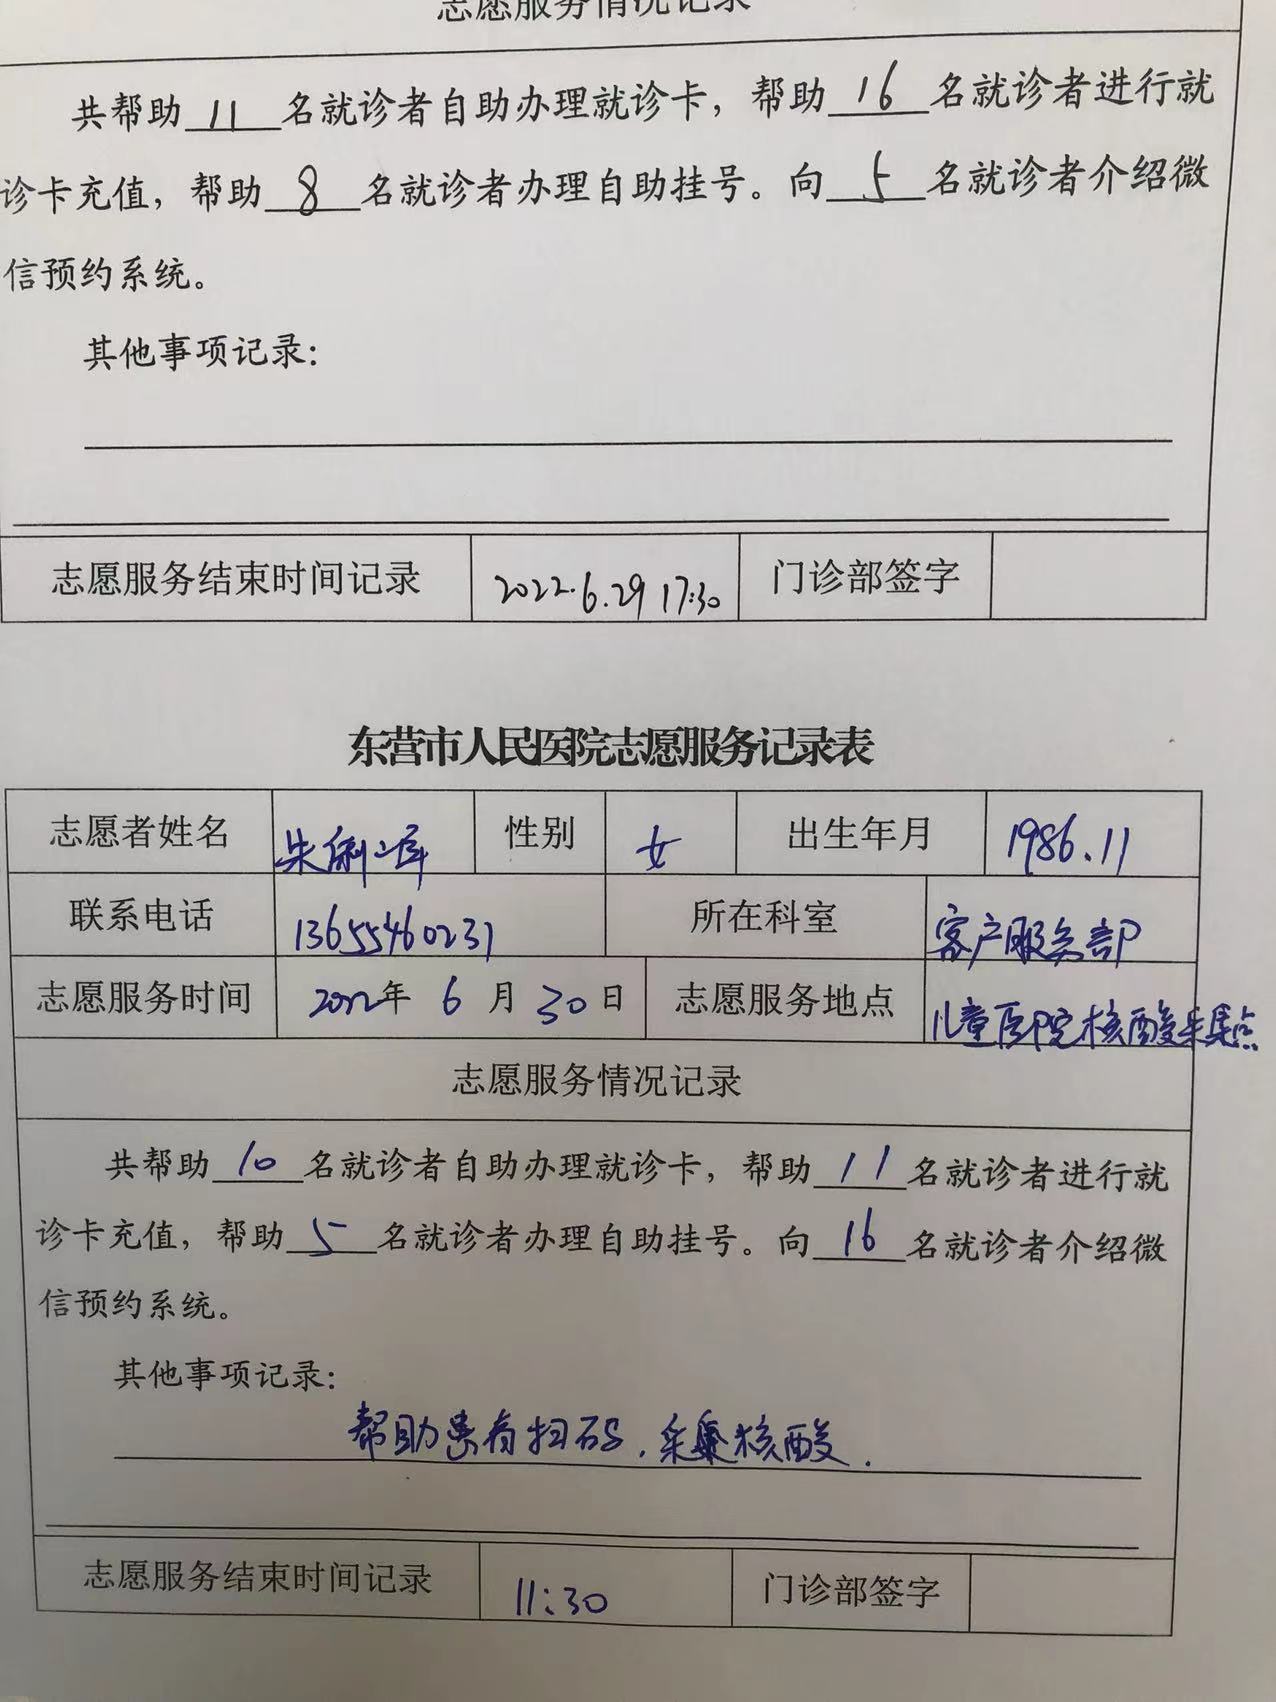 志愿服务情况记录
共帮助 11 名就诊者自助办理就诊卡，帮助 16 名就诊者进行就
诊卡充值，帮助 8 名就诊者办理自助挂号。向 5 名就诊者介绍微
信预约系统。
其他事项记录：
志愿服务结束时间记录 2022.6.29 17:30 门诊部签字
东营市人民医院志愿服务记录表
志愿者姓名 朱 性别 女 出生年月 1986.11
联系电话 13655460231 所在科室 客户服务部
志愿服务时间 2022年 6 月 30 日 志愿服务地点 儿童医院核酸采集点
志愿服务情况记录
共帮助 10 名就诊者自助办理就诊卡，帮助 11 名就诊者进行就
诊卡充值，帮助 5 名就诊者办理自助挂号。向 16 名就诊者介绍微
信预约系统。
其他事项记录：
帮助患者扫码，采集核酸.
志愿服务结束时间记录 11:30 门诊部签字